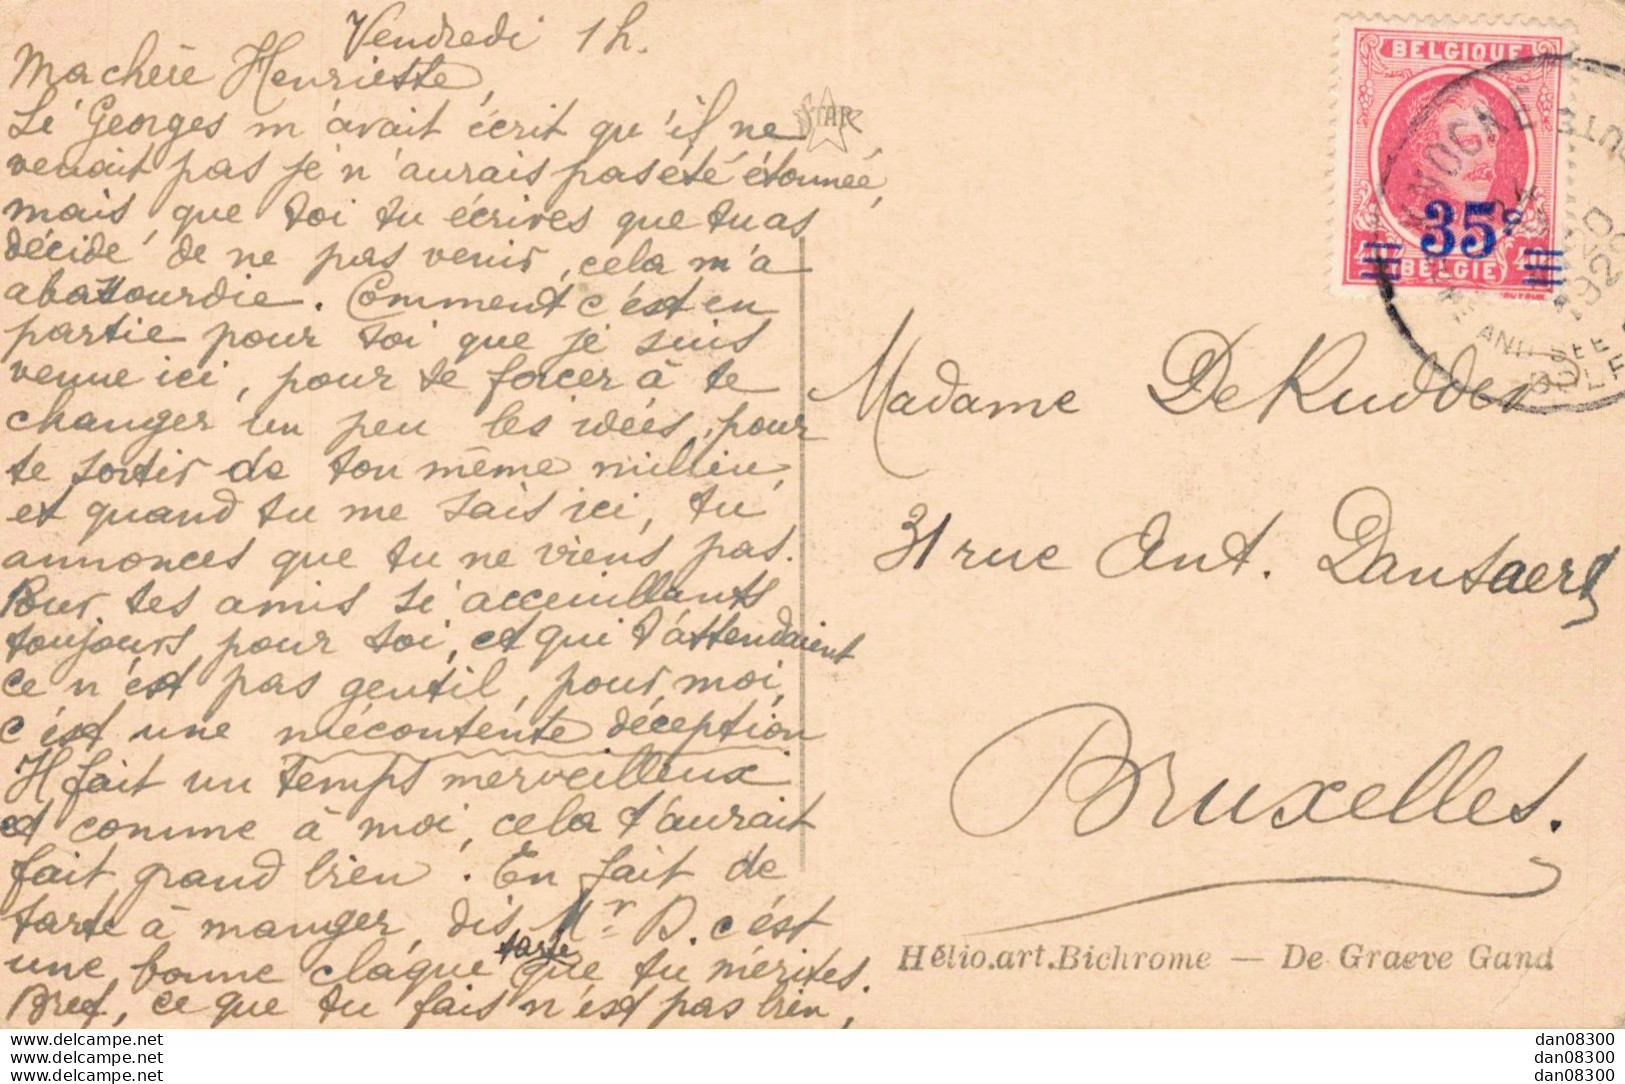 Vendredi 1 h.
Ma chère Henriette,
Si Georges m'avait écrit qu'il ne
venait pas je n'aurais pas été étonnée,
mais que toi tu écrives que tu as
décidé de ne pas venir, cela m'a
abasourdie. Comment c'est en
partie pour toi que je suis
venue ici, pour te forcer à te
changer un peu les idées, pour
te sortir de ton même milieu,
et quand tu me sais ici, tu
annonces que tu ne viens pas.
Pour tes amis si acceuillants
toujours pour toi, et qui t'attendaient
ce n'est pas gentil, pour moi,
c'est une mécontente déception
Il fait un temps merveilleux
et comme à moi, cela t'aurait
fait grand bien. En fait de
tarte à manger, dis Mr D. c'est
une bonne claque tarte que tu mérites.
Bref, ce que tu fais n'est pas bien,
STAR
BELGIQUE
35c
BELGIE
Madame DeRudder
31 rue Ant. Dansaert
Bruxelles.
Hélio.art.Bichrome — De Graeve Gand
www.delcampe.net
www.delcampe.net
www.delcampe.net
dan08300
dan08300
dan08300